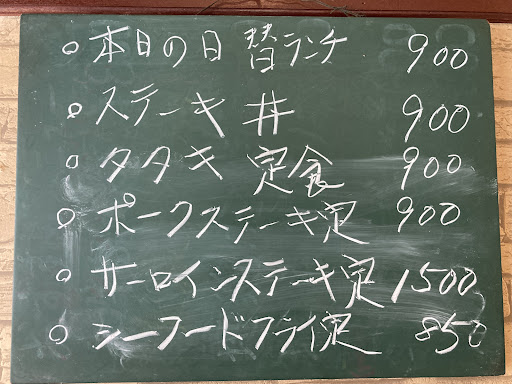 ○ 本日の日替ランチ 900
○ ステーキ井 900
○ タタキ定食 900
○ ポークステーキ定 900
○ サーロインステーキ定 1500
○ シーフードフライ定 850